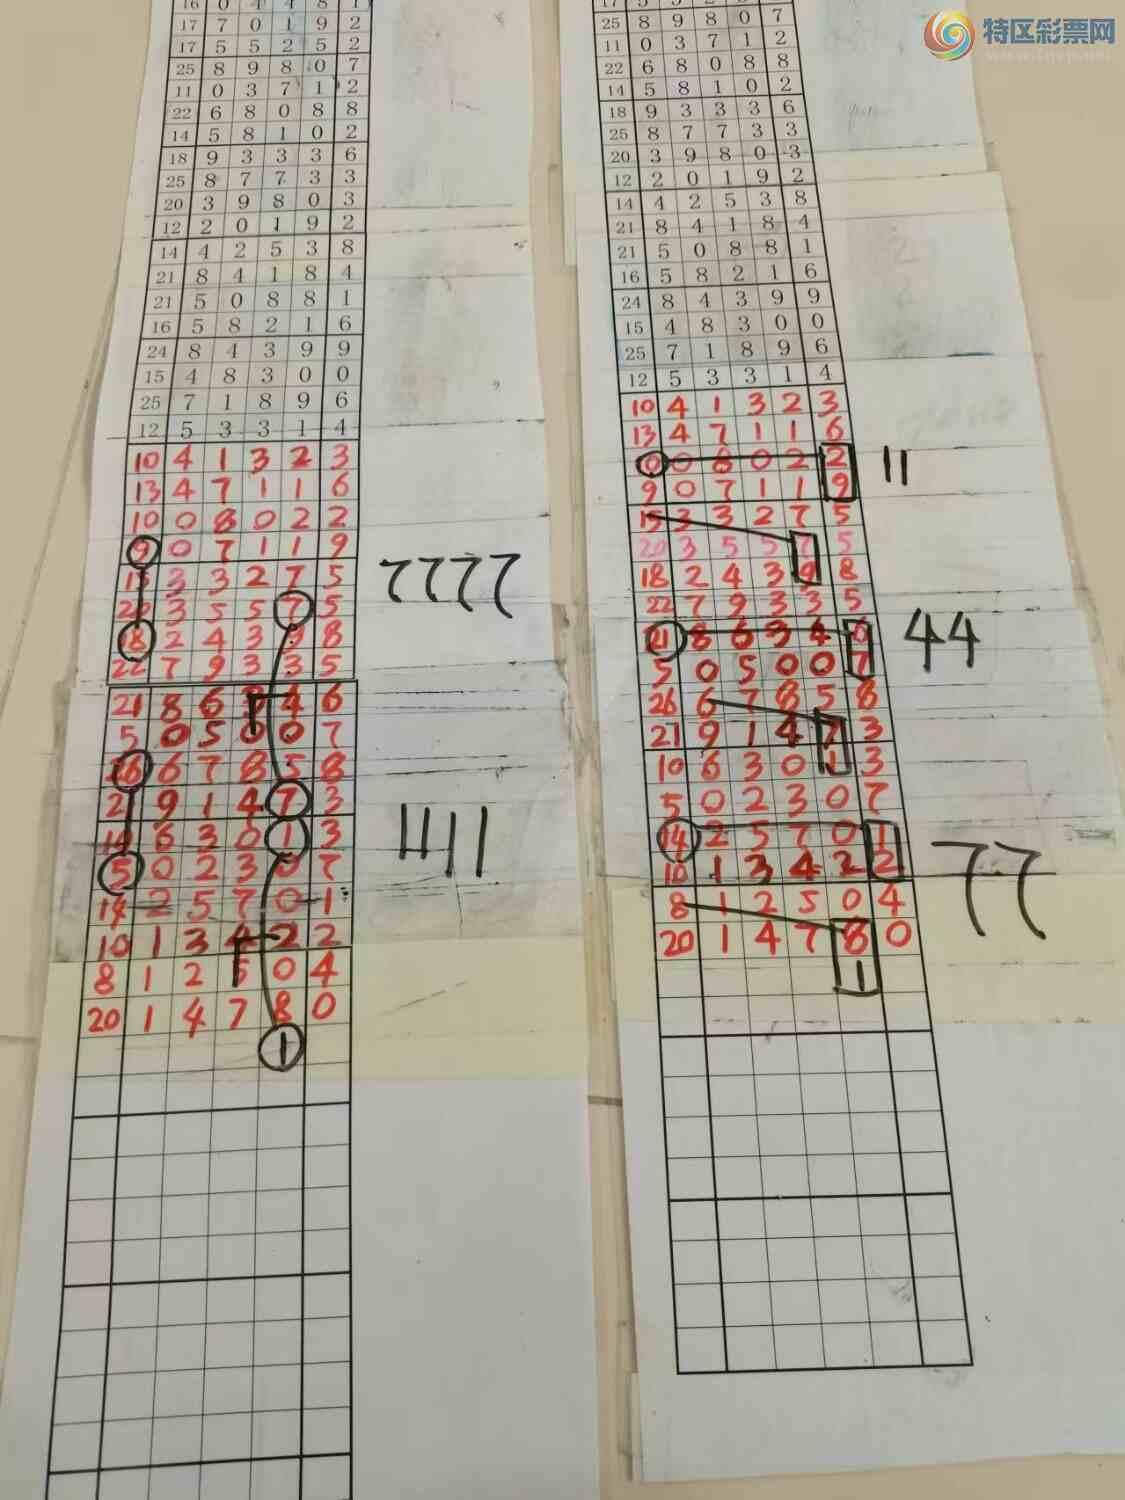 特区彩票网
17 7 0 1 9 2
17 5 5 2 5 2
25 8 9 8 0 7
11 0 3 7 1 2
22 6 8 0 8 8
14 5 8 1 0 2
18 9 3 3 3 6
25 8 7 7 3 3
20 3 9 8 0 3
12 2 0 1 9 2
14 4 2 5 3 8
21 8 4 1 8 4
21 5 0 8 8 1
16 5 8 2 1 6
24 8 4 3 9 9
15 4 8 3 0 0
25 7 1 8 9 6
12 5 3 3 1 4
10 4 1 3 2 3
13 4 7 1 1 6
10 0 8 0 2 2
9 0 7 1 1 9
15 3 3 2 7 5
7777
20 3 5 5 7 5
18 2 4 3 9 8
22 7 9 3 3 5
21 8 6 3 4 6
5 0 5 0 0 7
26 6 7 8 5 8
21 9 1 4 7 3
10 6 3 0 1 3
1111
5 0 2 3 0 7
14 2 5 7 0 1
10 1 3 4 2 2
8 1 2 5 0 4
20 1 4 7 8 0
1
25 8 9 8 0 7
11 0 3 7 1 2
22 6 8 0 8 8
14 5 8 1 0 2
18 9 3 3 3 6
25 8 7 7 3 3
20 3 9 8 0 3
12 2 0 1 9 2
14 4 2 5 3 8
21 8 4 1 8 4
21 5 0 8 8 1
16 5 8 2 1 6
24 8 4 3 9 9
15 4 8 3 0 0
25 7 1 8 9 6
12 5 3 3 1 4
10 4 1 3 2 3
13 4 7 1 1 6
10 0 8 0 2 2
11
9 0 7 1 1 9
15 3 3 2 7 5
20 3 5 5 7 5
18 2 4 3 9 8
22 7 9 3 3 5
21 8 6 3 4 6
44
5 0 5 0 0 7
26 6 7 8 5 8
21 9 1 4 7 3
10 6 3 0 1 3
5 0 2 3 0 7
14 2 5 7 0 1
77
10 1 3 4 2 2
8 1 2 5 0 4
20 1 4 7 8 0
1